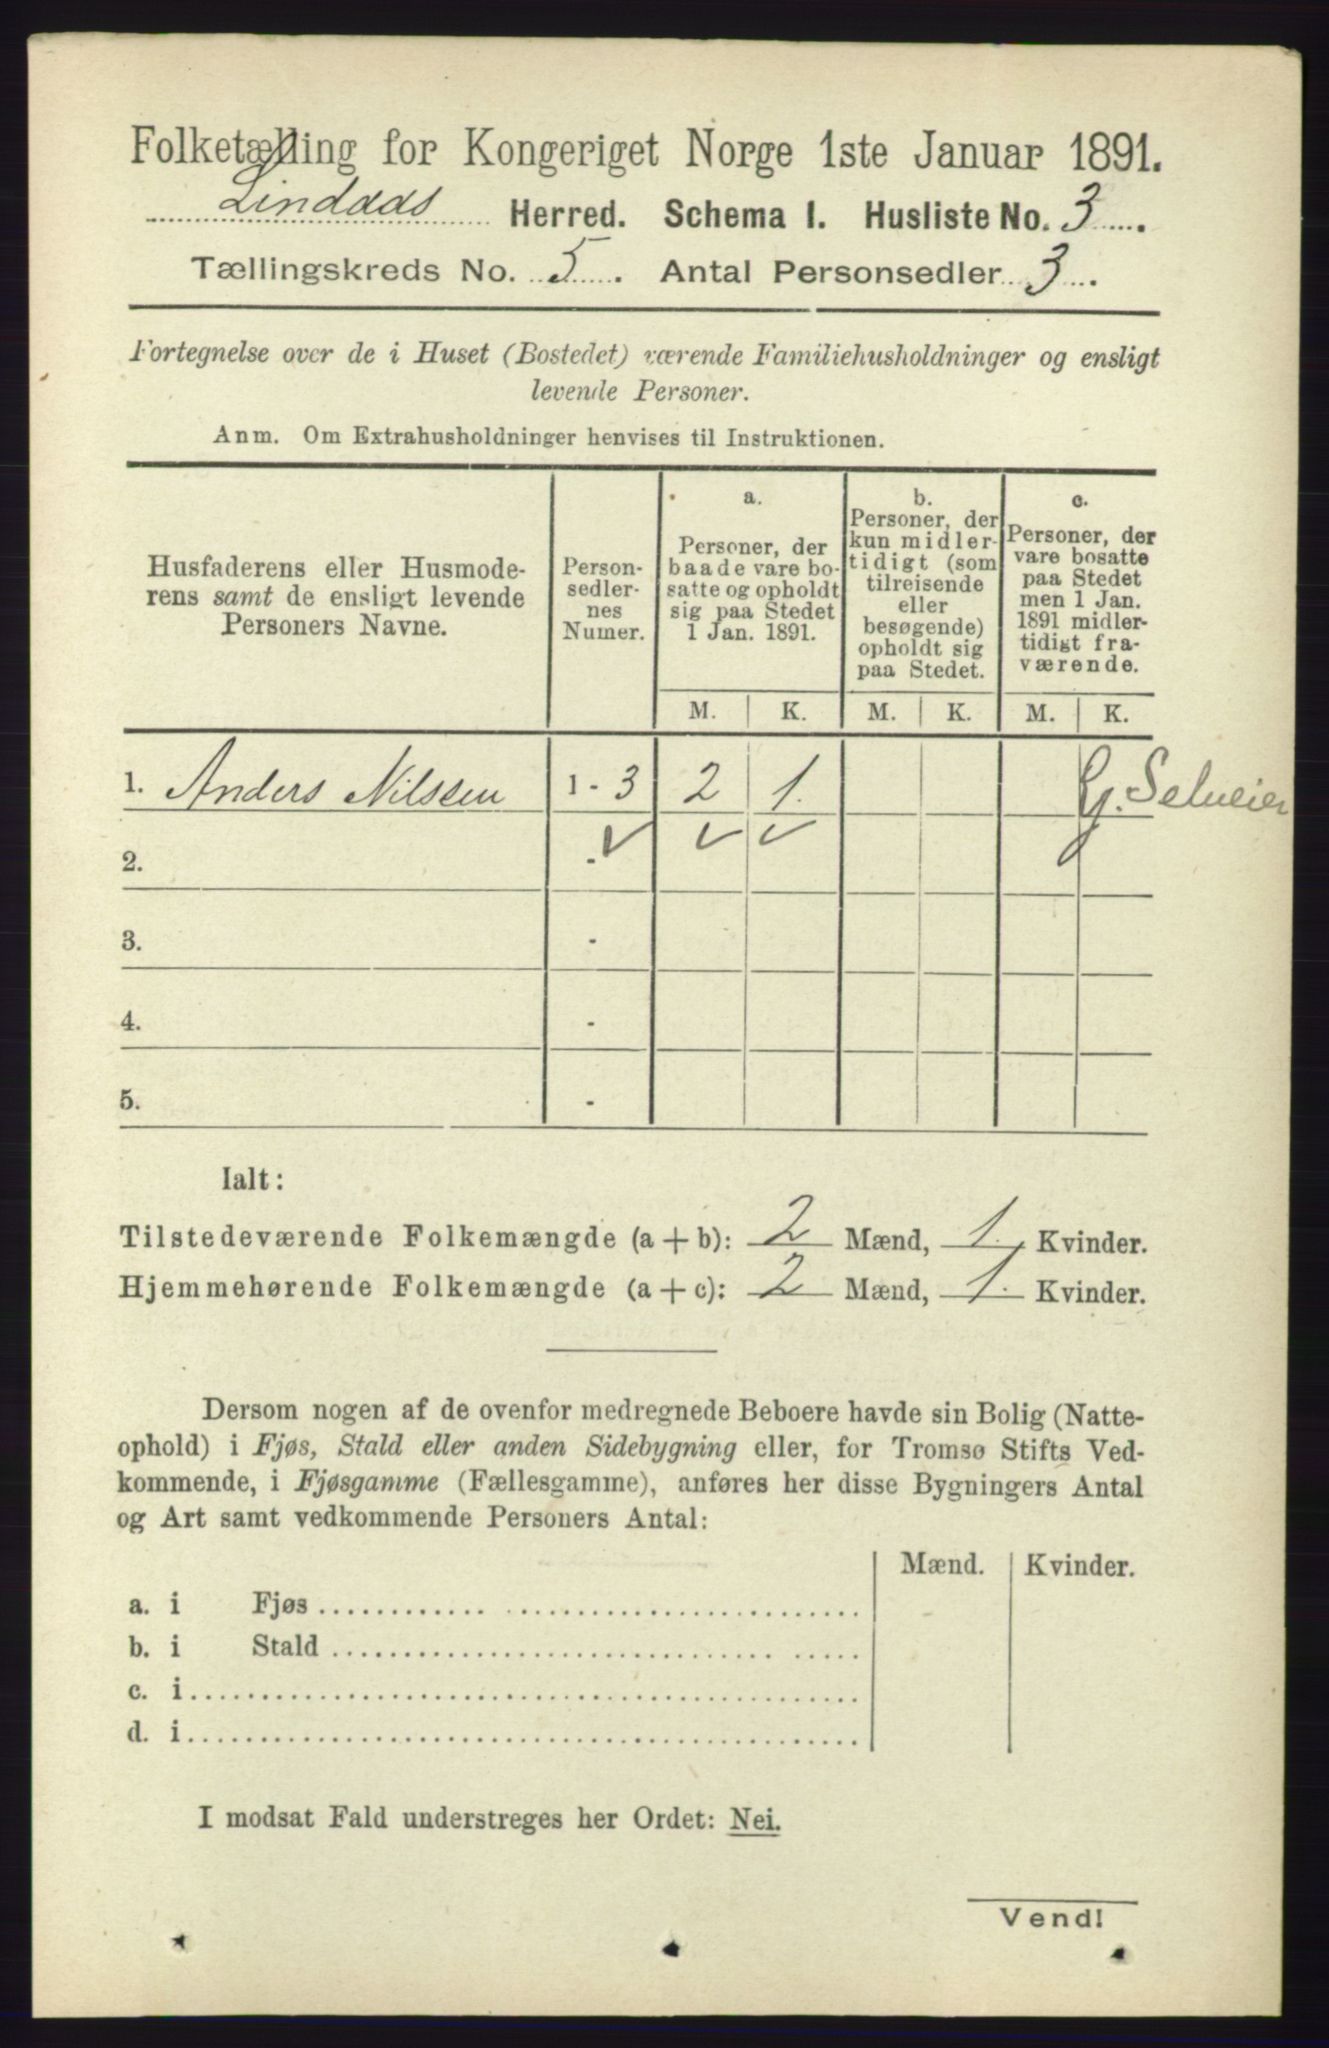 Folketælling for Kongeriget Norge 1ste Januar 1891.
Lindaas Herred. Schema I. Husliste No. 3.
Tællingskreds No. 5. Antal Personsedler 3.
Fortegnelse over de i Huset (Bostedet) værende Familiehusholdninger og ensligt
levende Personer.
Anm. Om Extrahusholdninger henvises til Instruktionen.
Husfaderens eller Husmode-
rens samt de ensligt levende
Personers Navne.
Person-
sedler-
nes
Numer.
a.
Personer, der
baade vare bo-
satte og opholdt
sig paa Stedet
1 Jan. 1891.
b.
Personer, der
kun midler-
tidigt (som
tilreisende
eller
besøgende)
opholdt sig
paa Stedet.
c.
Personer, der
vare bosatte
paa Stedet
men 1 Jan.
1891 midler-
tidigt fra-
værende.
M. K. M. K. M. K.
1. Anders Nilssen 1 - 3 2 1. G. Selveier
2. - ✓ ✓ ✓
3. -
4. -
5. -
Ialt:
Tilstedeværende Folkemængde (a + b): 2 Mænd, 1. Kvinder.
Hjemmehørende Folkemængde (a + c): 2 Mænd, 1. Kvinder.
Dersom nogen af de ovenfor medregnede Beboere havde sin Bolig (Natte-
ophold) i Fjøs, Stald eller anden Sidebygning eller, for Tromsø Stifts Ved-
kommende, i Fjøsgamme (Fællesgamme), anføres her disse Bygningers Antal
og Art samt vedkommende Personers Antal:
Mænd. Kvinder.
a. i Fjøs
b. i Stald
c. i
d. i
I modsat Fald understreges her Ordet: Nei.
Vend!